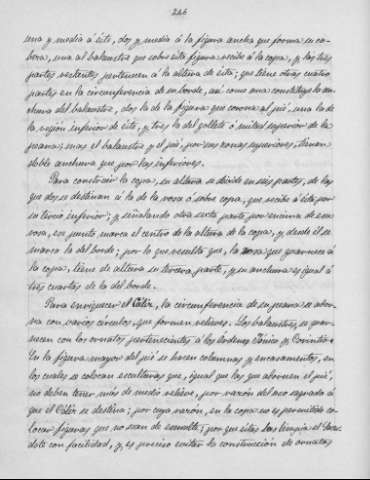 226
una y media á éste, dos y media á la figura ancha que forma su ca-
beza, una al balaustre que sobre ésta figura recibe á la copa, y las tres
partes restantes pertenecen á la altura de ésta; que tiene otras cuatro
partes en la circunferencia de su borde, así como una constituye la an-
chura del balaustre, dos la de la figura que corona al pié, una la de
la región inferior de éste, y tres la del gollete ó mitad superior de la
peana; mas el balaustre y el pié, por sus zonas superiores, tienen
doble anchura que por las inferiores.
Para construir la copa, su altura se divide en seis partes, de las
que dos se destinan á la de la rosa ó sobre copa, que recibe á ésta por
su tercio inferior; y señalando otra sexta parte por encima de esa
rosa, su punto marca el centro de la altura de la copa, y desde él se
marca la del borde; por lo que resulta que, la rosa que guarnece á
la copa, tiene de altura su tercera parte, y su anchura es igual á
tres cuartas de la del borde.
Para enriquecer el Cáliz, la circunferencia de su peana se ador-
na con varios círculos, que formen relieves. Los balaustres, se guar-
necen con los ornatos pertenecientes á los órdenes Jónico y Corintio.
En la figura mayor del pié se hacen columnas y encasamentos, en
los cuales se colocan esculturas que, igual que las que adornen el pié,
no deben tener más de medio relieve, por razón del uso sagrado á
que el Cáliz se destina; por cuya razón, en la copa no es permitido co-
locar figuras que no sean de esmalte; por que éstas las limpia el Sacer-
dote con facilidad, y, es preciso evitar la construcción de ornatos